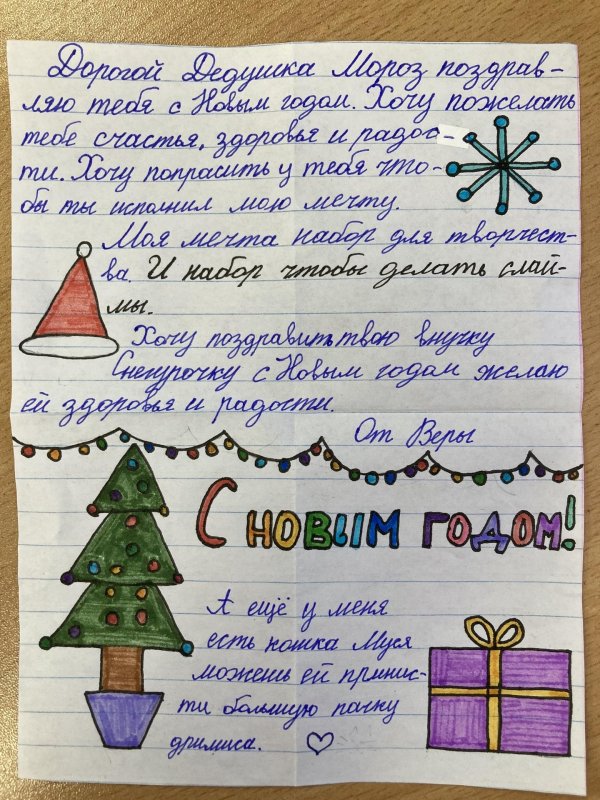 Дорогой Дедушка Мороз поздрав-
ляю тебя с Новым годом. Хочу пожелать
тебе счастья, здоровья и радос-
ти. Хочу попрасить у тебя что-
бы ты исполнил мою мечту.
Моя мечта набор для творчест-
ва. И набор чтобы делать слай-
мы.
Хочу поздравить твою внучку
Снегурочку с Новым годам желаю
ей здоровья и радости.
От Веры
С НОВЫМ ГОДОМ!
А ещё у меня
есть кошка Муся
можешь ей принис-
ти большую пачку
дримиса.